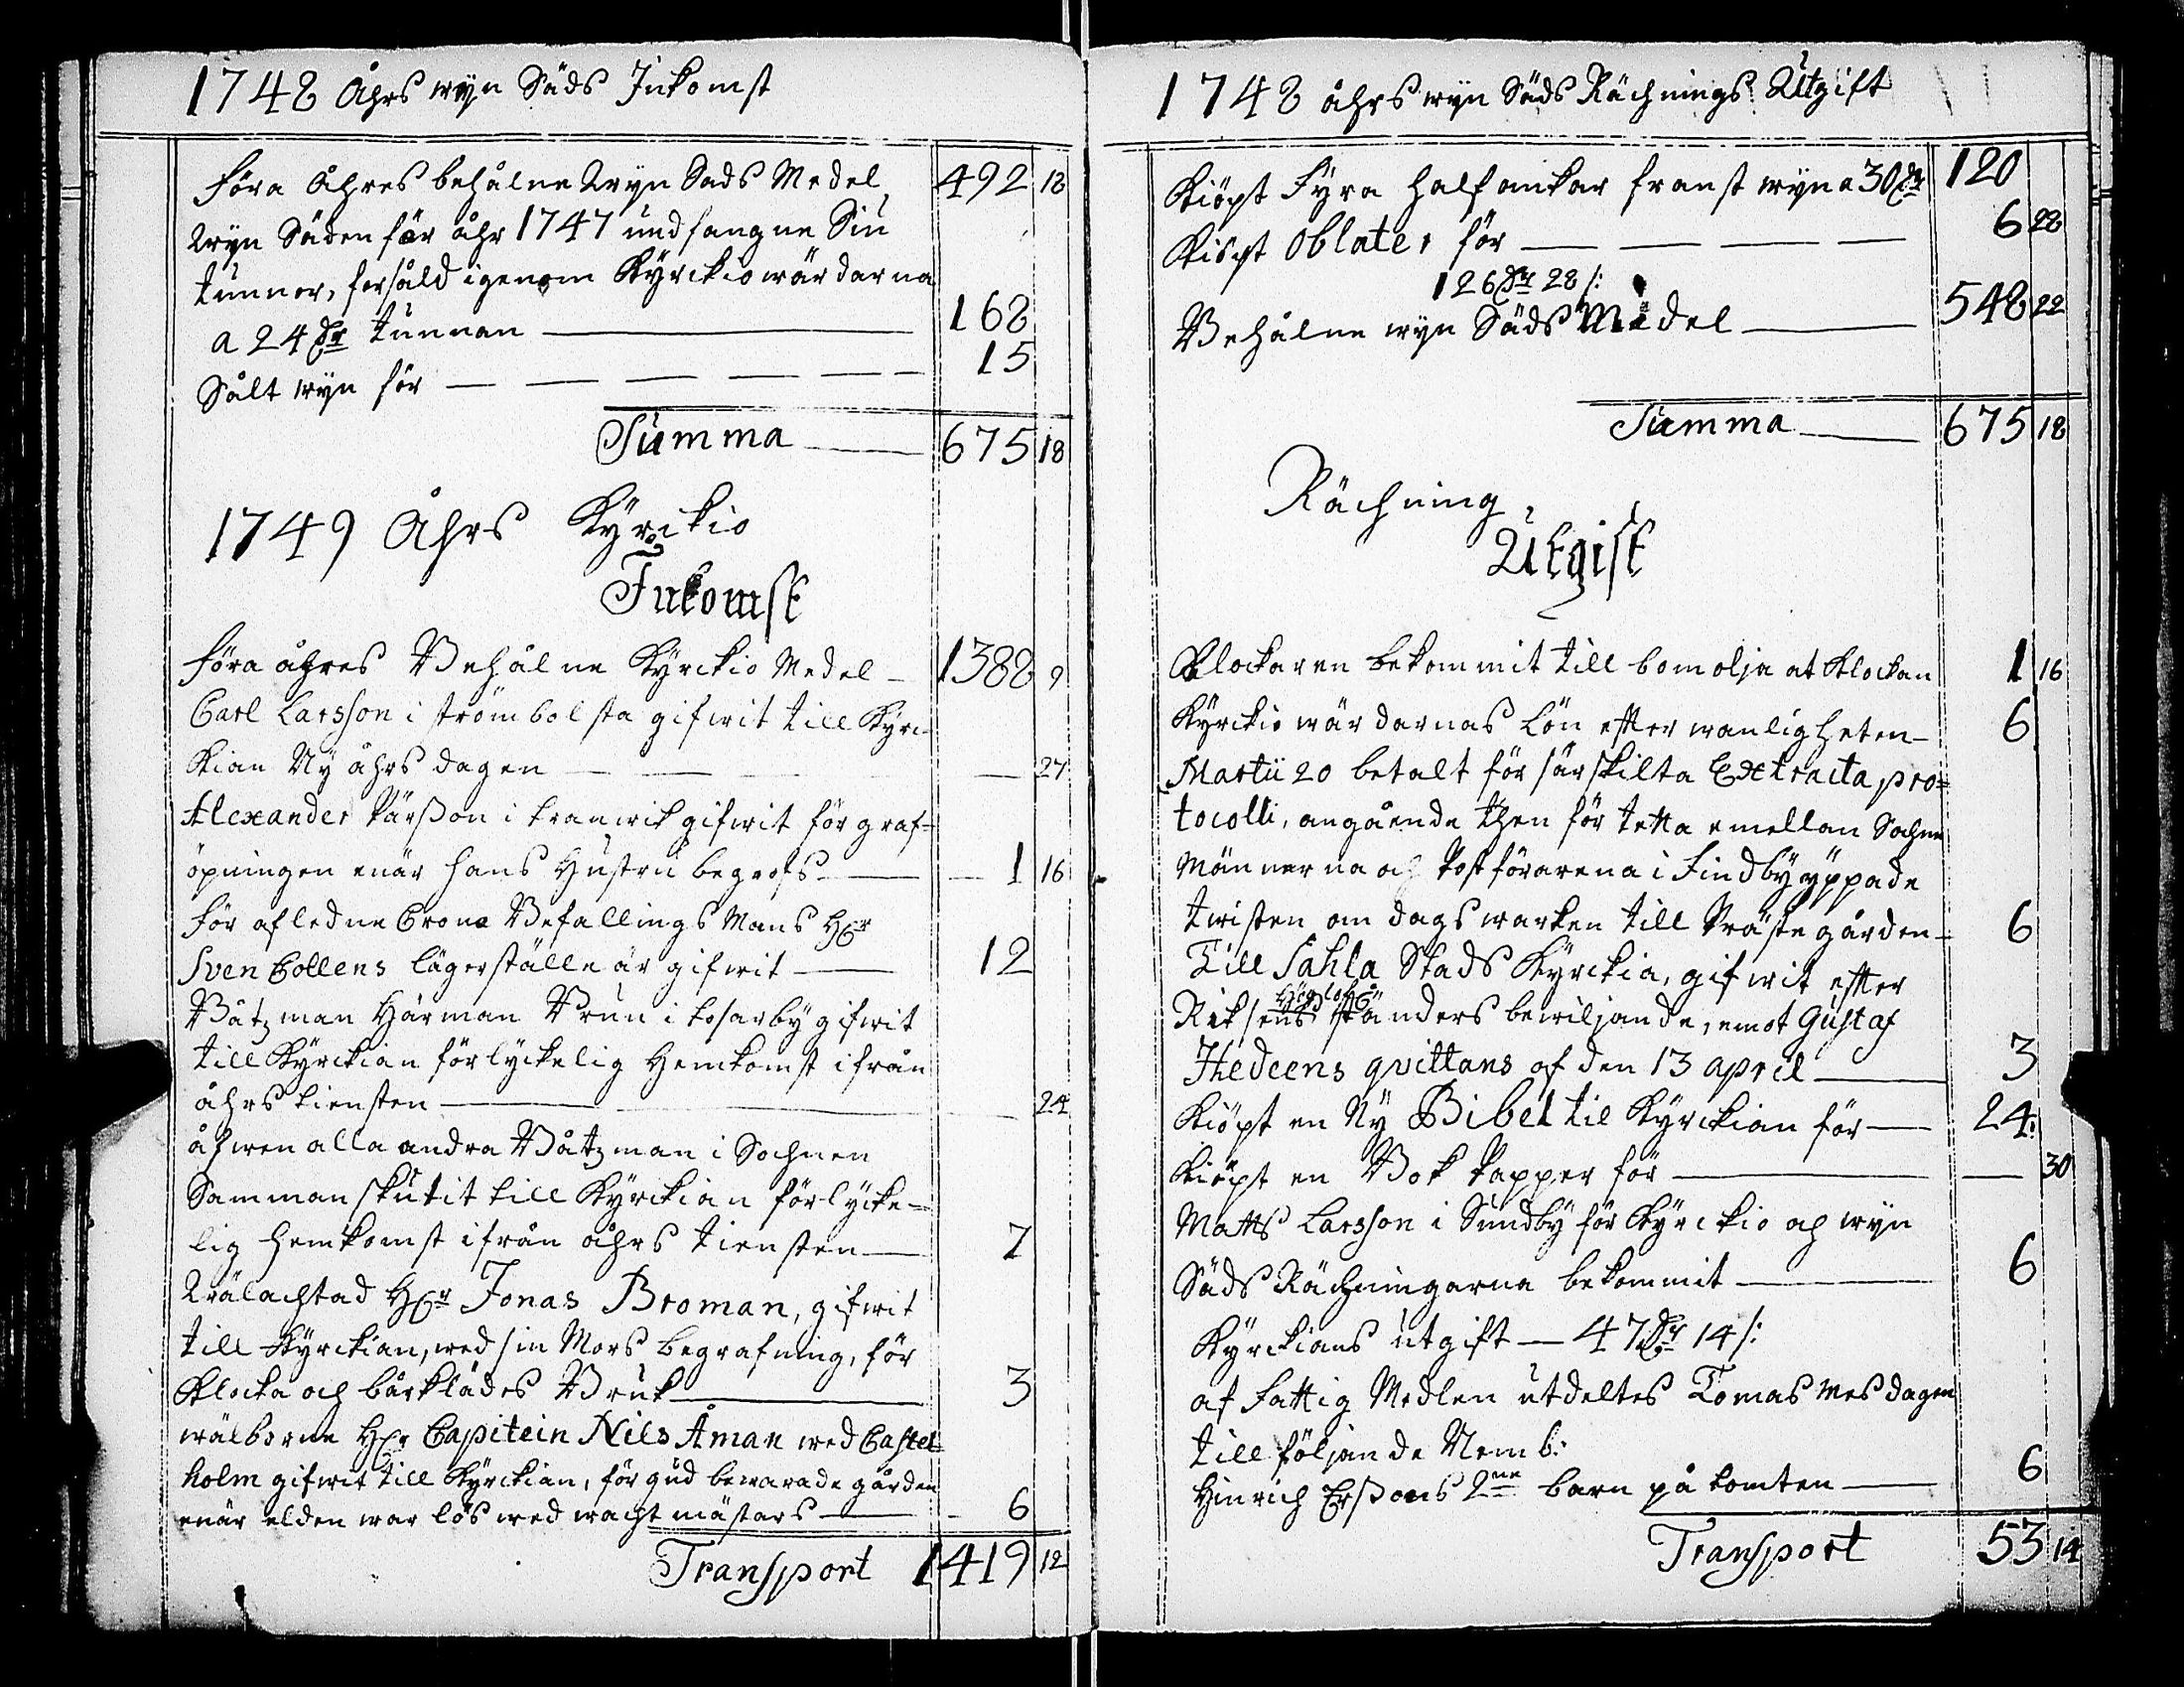 1748 Åhrs wyn Säds Inkomst
föra Åhres behålne Wyn Säds Medel 492 18
Wyn Säden för åhr 1747 undfangne Siu
tunnor, försåld igenom Kyrckiowärdarna
a 24 Dr tunnan 168
Sålt wyn för 15
Summa 675 18
1749 Åhrs Kyrckio
Inkomst
föra åhres Behålne Kyrckio Medel 1388 9
Carl Larsson i strömbolsta gifwit till Kyrc-
kian Ny åhrs dagen 27
Alexander Pärßon i tranwik gifwit för graf=
öpningen enär hans Hustru begrofs 1 16
för afledne Crono Befallings Mans Hr
Sven Collens lägerställe är gifwit 12
Båtzman Härman Brun i Cosarby gifwit
till Kyrckian för lyckelig Hemkomst ifrån
åhrs tiensten 24
åfwen alla andra Båtzmän i Sochnen
Sammanskutit till Kyrckian för lycke=
lig hemkomst ifrån åhrs tiensten 7
Wälachtad Hr Jonas Broman, gifwit
till Kyrckian, wed sin Mors begrafning, för
Klocka och bårklädes Bruk 3
wälborne Hr Capitein Nils Åman wed Castel=
holm gifwit till Kyrckian, för gud bewarade gården
enär elden war lös wed wachtmästars 6
Transport 1419 12
1748 åhrs wyn Säds Rächnings Utgift
Kiöpt Fyra halfankar franst wyn a 30 Dr 120
Kiöpt Oblater för 6 28
126 Dr 28 /:
Behålne wyn Säds Medel 548 22
Summa 675 18
Rächning
Utgift
Klockaren bekommit till bomolja at Klockan 1 16
Kyrckiowärdarnas Lön efter wanligheten 6
Martii 20 betalt för särskilta Extracta pro=
tocolli, angående then för detta emellan Sochne
Männerna och Postförarena i Findby yppade
twisten om dagswärken till Prästegården 6
Till Sahla Stads Kyrckia, gifwit efter
Riksens Höglofl. ständers bewiljande, emot Gustaf
Hedeens qvittans af den 13 april 3
Kiöpt en Ny Bibel til Kyrckian för 24
Kiöpt en Bok Papper för 30
Matts Larsson i Sundby för Kyrckio och wyn
Säds Rächningarna bekommit 6
Kyrckians utgift 47 Dr 14 /:
af Fattig Medlen utdeltes Tomasmesdagen
till följande Nemb:
Hinrich Erßons 2ne barn på tomten 6
Transport 53 14